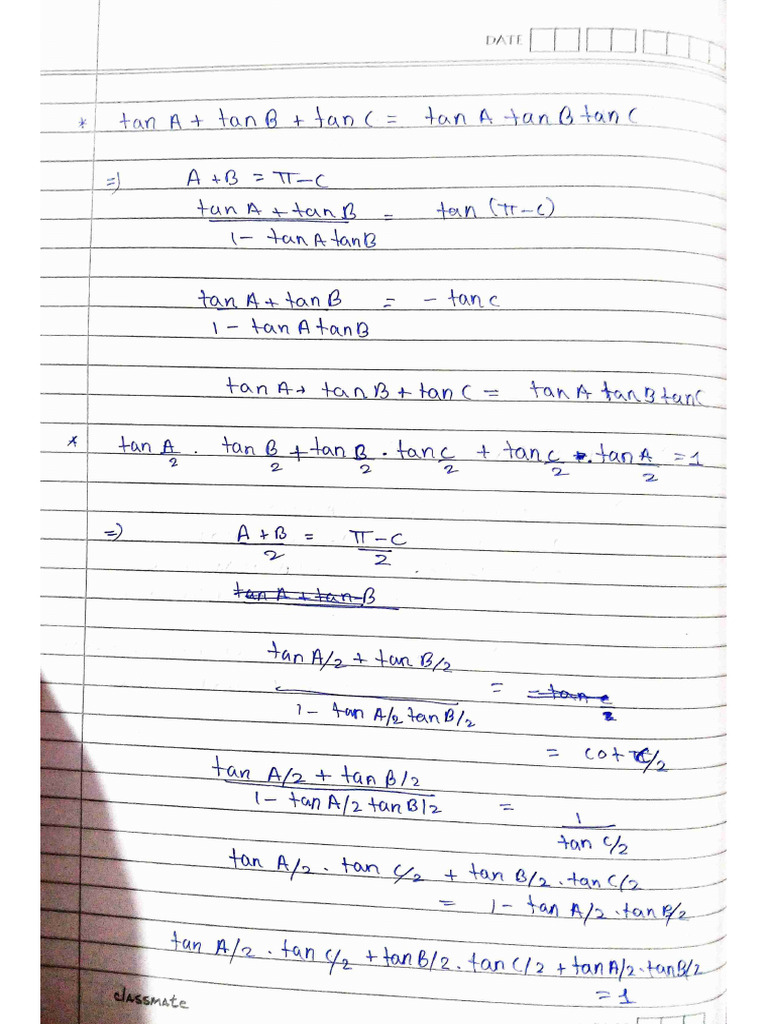 DATE
* tan A + tan B + tan C = tan A tan B tan C
=) A + B = π - C
tan A + tan B = tan (π - C)
1 - tan A tan B
tan A + tan B = - tan C
1 - tan A tan B
tan A + tan B + tan C = tan A tan B tan C
* tan A/2 . tan B/2 + tan B/2 . tan C/2 + tan C/2 . tan A/2 = 1
=) A + B / 2 = π - C / 2
tan A + tan B
tan A/2 + tan B/2
1 - tan A/2 tan B/2 = - tan C/2
= cot C/2
tan A/2 + tan B/2
1 - tan A/2 tan B/2 = 1 / tan C/2
tan A/2 . tan C/2 + tan B/2 . tan C/2
= 1 - tan A/2 . tan B/2
tan A/2 . tan C/2 + tan B/2 . tan C/2 + tan A/2 . tan B/2
= 1
classmate